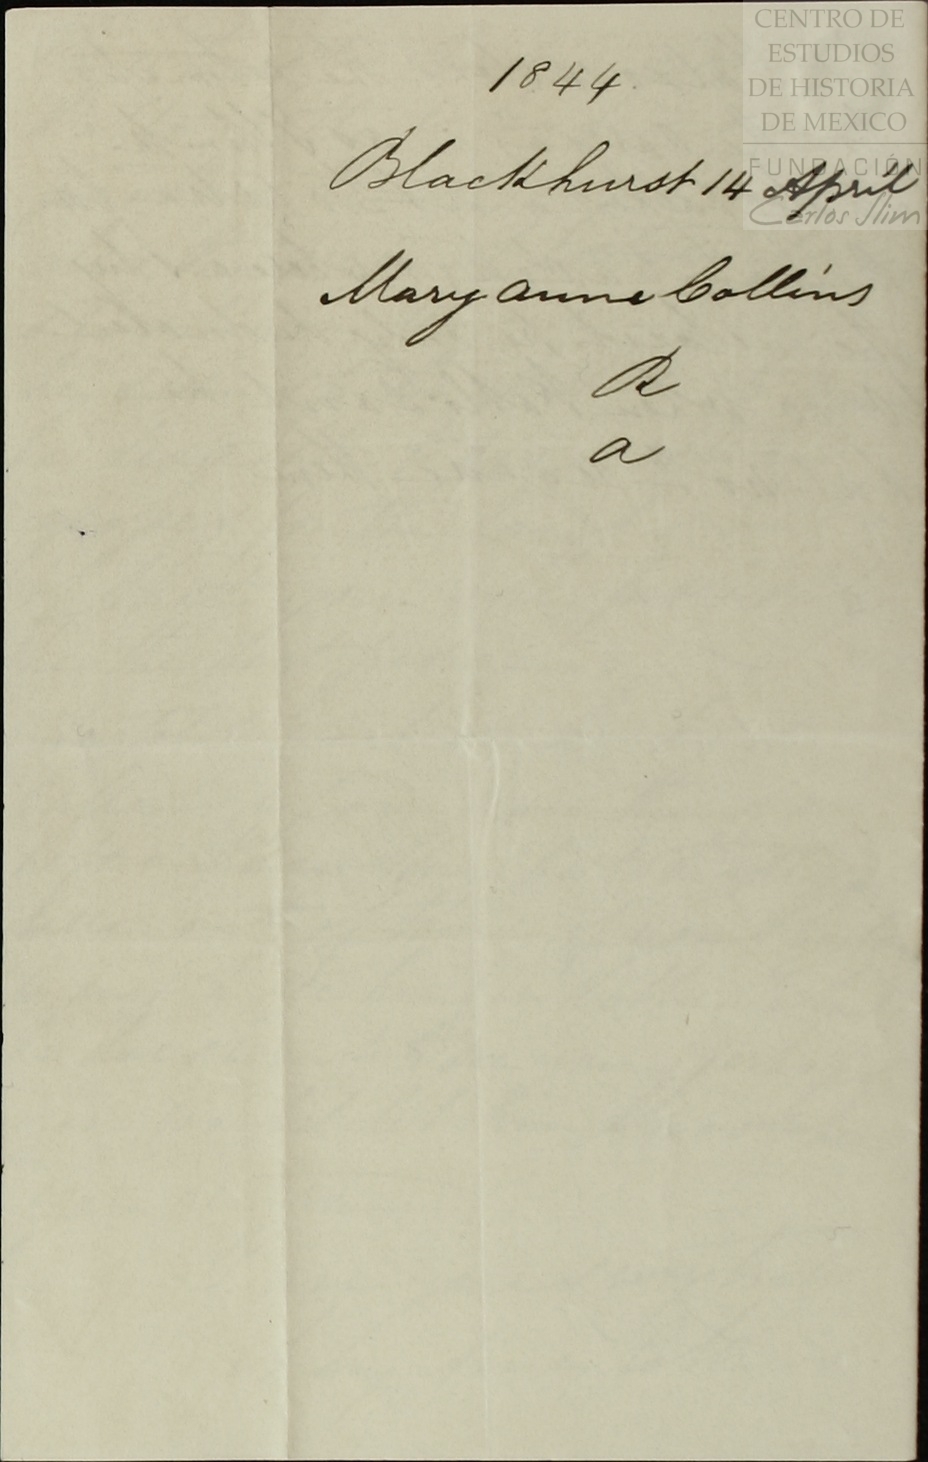 CENTRO DE
ESTUDIOS
DE HISTORIA
DE MEXICO
FUNDACIÓN
Carlos Slim
1844.
Blackhurst 14 April
Mary anne Collins
R
a